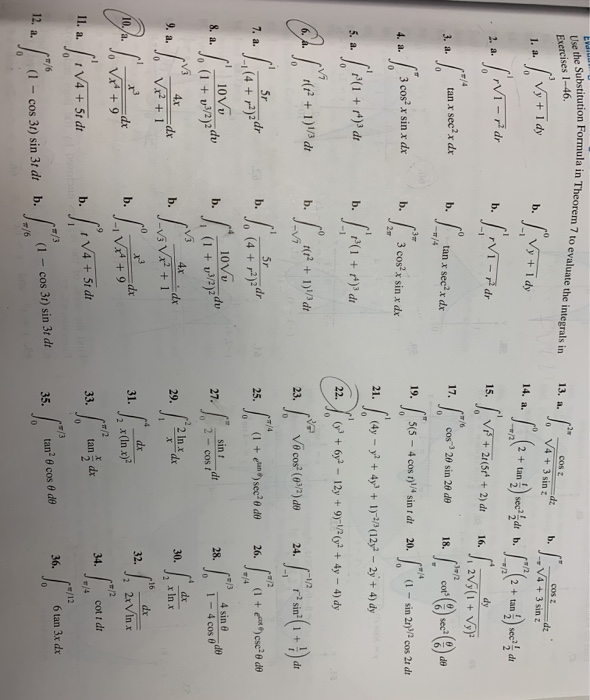 Use the Substitution Formula in Theorem 7 to evaluate the integrals in
Exercises 1–46.
1. a. ∫₀³ √(y + 1) dy b. ∫₋₁⁰ √(y + 1) dy
2. a. ∫₀¹ r√(1 − r²) dr b. ∫₋₁¹ r√(1 − r²) dr
3. a. ∫₀^(π/4) tan x sec² x dx b. ∫₋π/4⁰ tan x sec² x dx
4. a. ∫₀^π 3 cos² x sin x dx b. ∫₂π^(3π) 3 cos² x sin x dx
5. a. ∫₀¹ t³(1 + t⁴)³ dt b. ∫₋₁¹ t³(1 + t⁴)³ dt
6. a. ∫₀^√7 t(t² + 1)^(1/3) dt b. ∫₋√7⁰ t(t² + 1)^(1/3) dt
7. a. ∫₋₁¹ 5r/(4 + r²)² dr b. ∫₀¹ 5r/(4 + r²)² dr
8. a. ∫₀¹ 10√v/(1 + v^(3/2))² dv b. ∫₁⁴ 10√v/(1 + v^(3/2))² dv
9. a. ∫₀^√3 4x/√(x² + 1) dx b. ∫₋√3^√3 4x/√(x² + 1) dx
10. a. ∫₀¹ x³/√(x⁴ + 9) dx b. ∫₋₁⁰ x³/√(x⁴ + 9) dx
11. a. ∫₀¹ t√(4 + 5t) dt b. ∫₁⁹ t√(4 + 5t) dt
12. a. ∫₀^(π/6) (1 − cos 3t) sin 3t dt b. ∫_(π/6)^(π/3) (1 − cos 3t) sin 3t dt
13. a. ∫₀^(2π) cos z/√(4 + 3 sin z) dz b. ∫₋π^π cos z/√(4 + 3 sin z) dz
14. a. ∫₋π/2⁰ (2 + tan t/2) sec² t/2 dt b. ∫₋π/2^(π/2) (2 + tan t/2) sec² t/2 dt
15. ∫₀¹ √(t⁵ + 2t)(5t⁴ + 2) dt 16. ∫₁⁴ dy/(2√y(1 + √y)²)
17. ∫₀^(π/6) cos⁻³ 2θ sin 2θ dθ 18. ∫_π^(3π/2) cot⁵(θ/6) sec²(θ/6) dθ
19. ∫₀^π 5(5 − 4 cos t)^(1/4) sin t dt 20. ∫₀^(π/4) (1 − sin 2t)^(3/2) cos 2t dt
21. ∫₀¹ (4y − y² + 4y³ + 1)^(−2/3) (12y² − 2y + 4) dy
22. ∫₀¹ (y³ + 6y² − 12y + 9)^(−1/2) (y² + 4y − 4) dy
23. ∫₀ √θ cos²(θ^(3/2)) dθ 24. ∫₋₁^(−1/2) t⁻² sin²(1 + 1/t) dt
25. ∫₀^(π/4) (1 + e^(tan θ)) sec² θ dθ 26. ∫_(π/4)^(π/2) (1 + e^(cot θ)) csc² θ dθ
27. ∫₀^π sin t/(2 − cos t) dt 28. ∫₀^(π/3) 4 sin θ/(1 − 4 cos θ) dθ
29. ∫₁² 2 ln x/x dx 30. ∫₂⁴ dx/(x ln x)
31. ∫₂⁴ dx/(x(ln x)²) 32. ∫₂¹⁶ dx/(2x√(ln x))
33. ∫₀^(π/2) tan x/2 dx 34. ∫_(π/4)^(π/2) cot t dt
35. ∫₀^(π/3) tan² θ cos θ dθ 36. ∫₀^(π/12) 6 tan 3x dx